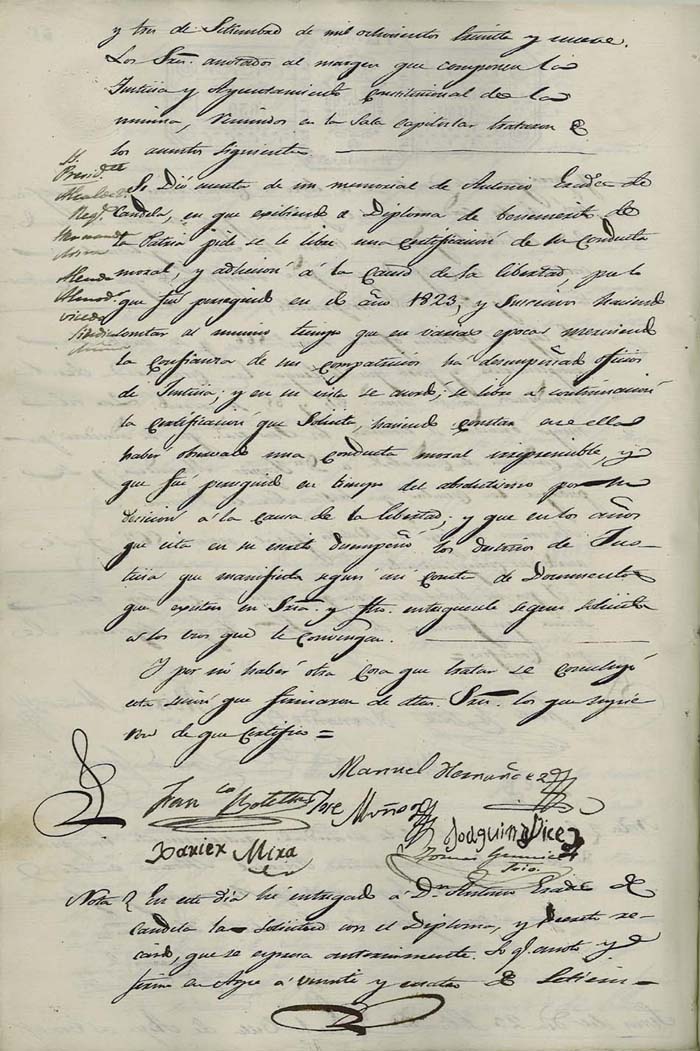 y tres de Setiembre de mil ochocientos treinta y nueve.
Los Sres. anotados al margen que componen la
Justicia y Ayuntamiento Constitucional de la
misma, reunidos en la Sala Capitular trataron
los asuntos siguientes
Sr.
Presid.te
Alcalde
Reg.
Hernandez
Mira
Se Dió cuenta de un memorial de Antonio de
Candela, en que exibiendo el Diploma de benemerito de
la Patria pide se le libre una certificacion de su conducta
moral, y adhesion á la Causa de la libertad, por lo
que fué perseguido en el año 1823; y haciendo
constar al mismo tiempo que en varias epocas mereciendo
la confianza de sus compatricios ha desempeñado oficios
de Justicia; y en su vista se acordó; se libre a continuacion
la certificacion que Solicita, haciendo constar en ella
haber observado una conducta moral irreprensible, y
que fué perseguido en tiempo del absolutismo por su
adesion á la causa de la libertad; y que en los años
que cita en su escrito desempeñó los destinos de Jus-
ticia que manifiesta segun asi consta de Documentos
que existen en Sria. y entreguesele segun solicita
a los usos que le convengan.
Y por no haber otra cosa que tratar se concluyó
esta sesion que firmaron de dhos. Sres. los que supie
ron de que certifico =
Manuel Hernandez
Fran.co Botella
Jose Muñoz
Joaquin
Xavier Mira
Tomas
Srio.
Nota En este dia hé entregado á Dn. Antonio de
Candela la Solicitud con el Diploma, y
que se espresa anteriormente. Lo q.e anoto y
firmo en Aspe á veinte y cuatro de Setiem-